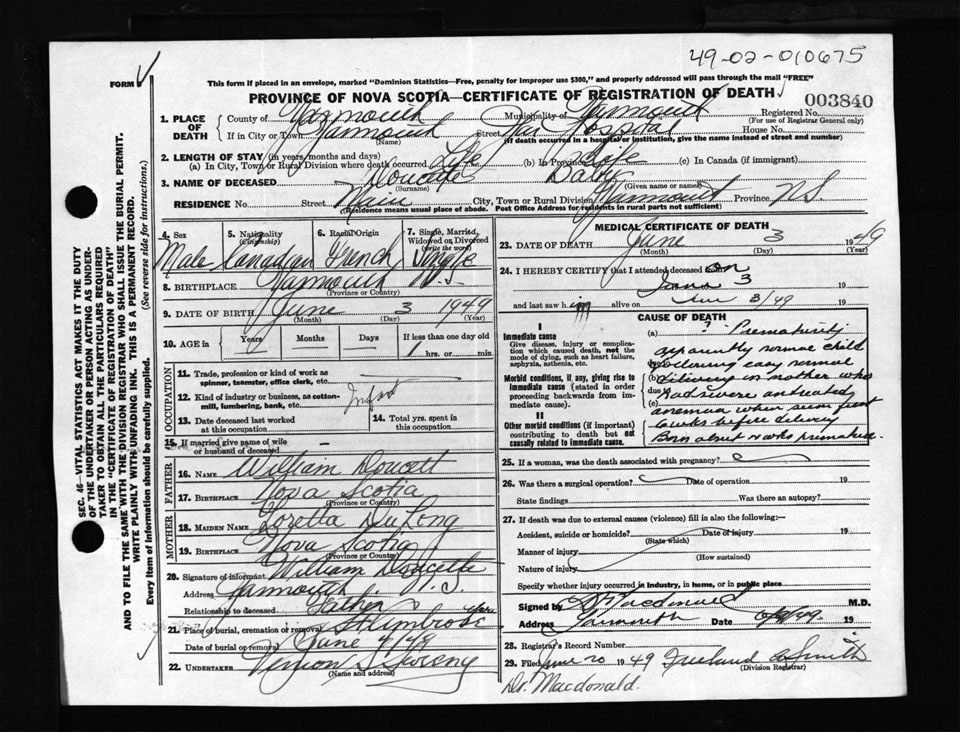 49-02-010675
FORM
This form if placed in an envelope, marked "Dominion Statistics—Free, penalty for improper use $300," and properly addressed will pass through the mail "FREE"
PROVINCE OF NOVA SCOTIA—CERTIFICATE OF REGISTRATION OF DEATH
003840
1. PLACE OF DEATH County of Yarmouth Municipality of Yarmouth Registered No.
(For use of Registrar General only)
If in City or Town Yarmouth Street Hospital House No.
(Name) (If death occurred in a hospital or institution, give the name instead of street and number)
2. LENGTH OF STAY (in years, months and days)
(a) In City, Town or Rural Division where death occurred Life (b) In Province Life (c) In Canada (if immigrant)
3. NAME OF DECEASED Doucette Baby
(Surname) (Given name or names)
RESIDENCE No. Street Main City, Town or Rural Division Yarmouth Province N.S.
(Residence means usual place of abode. Post Office Address for residents in rural parts not sufficient)
4. Sex 5. Nationality (Citizenship) 6. Racial Origin 7. Single, Married, Widowed or Divorced (write the word)
Male Canadian French Single
8. BIRTHPLACE Yarmouth N.S.
(Province or Country)
9. DATE OF BIRTH June 3 1949
(Month) (Day) (Year)
10. AGE in Years Months Days If less than one day old
1 hrs. or min.
OCCUPATION
11. Trade, profession or kind of work as spinner, teamster, office clerk, etc.
12. Kind of industry or business, as cotton-mill, lumbering, bank, etc. Infant
13. Date deceased last worked at this occupation 14. Total yrs. spent in this occupation
15. If married give name of wife or husband of deceased –
FATHER
16. NAME William Doucett
17. BIRTHPLACE Nova Scotia
(Province or Country)
MOTHER
18. MAIDEN NAME Loretta DuLong
19. BIRTHPLACE Nova Scotia
(Province or Country)
20. Signature of informant William Doucette
Address Yarmouth N.S.
Relationship to deceased Father
21. Place of burial, cremation or removal St Ambrose
Date of burial or removal June 4/49
22. UNDERTAKER Vernon
(Name and address)
MEDICAL CERTIFICATE OF DEATH
23. DATE OF DEATH June 3 1949
(Month) (Day) (Year)
24. I HEREBY CERTIFY that I attended deceased on
June 3 19
and last saw him alive on June 3/49 19
CAUSE OF DEATH
I
Immediate cause
Give disease, injury or complication which caused death, not the mode of dying, such as heart failure, asphyxia, asthenia, etc.
Morbid conditions, if any, giving rise to immediate cause (stated in order proceeding backwards from immediate cause).
II
Other morbid conditions (if important) contributing to death but not causally related to immediate cause.
(a) ? Prematurity
apparently normal child
following easy normal
(b) delivery in mother who
due to had severe untreated
anemia when seen first
(c) weeks before delivery
Born about weeks premature.
25. If a woman, was the death associated with pregnancy?
26. Was there a surgical operation? Date of operation 19
State findings Was there an autopsy?
27. If death was due to external causes (violence) fill in also the following:—
Accident, suicide or homicide? Date of injury 19
(State which)
Manner of injury
(How sustained)
Nature of injury
Specify whether injury occurred in industry, in home, or in public place
Signed by D. Macdonald M.D.
Address Yarmouth Date 19
28. Registrar's Record Number
29. Filed June 20 1949 Freeland Smith
(Division Registrar)
Dr. Macdonald.
SEC. 46—VITAL STATISTICS ACT MAKES IT THE DUTY OF THE UNDERTAKER OR PERSON ACTING AS UNDERTAKER TO OBTAIN ALL THE PARTICULARS REQUIRED IN THE "CERTIFICATE OF REGISTRATION OF DEATH" AND TO FILE THE SAME WITH THE DIVISION REGISTRAR WHO SHALL ISSUE THE BURIAL PERMIT.
WRITE PLAINLY WITH UNFADING INK. THIS IS A PERMANENT RECORD.
Every item of information should be carefully supplied. (See reverse side for instructions.)